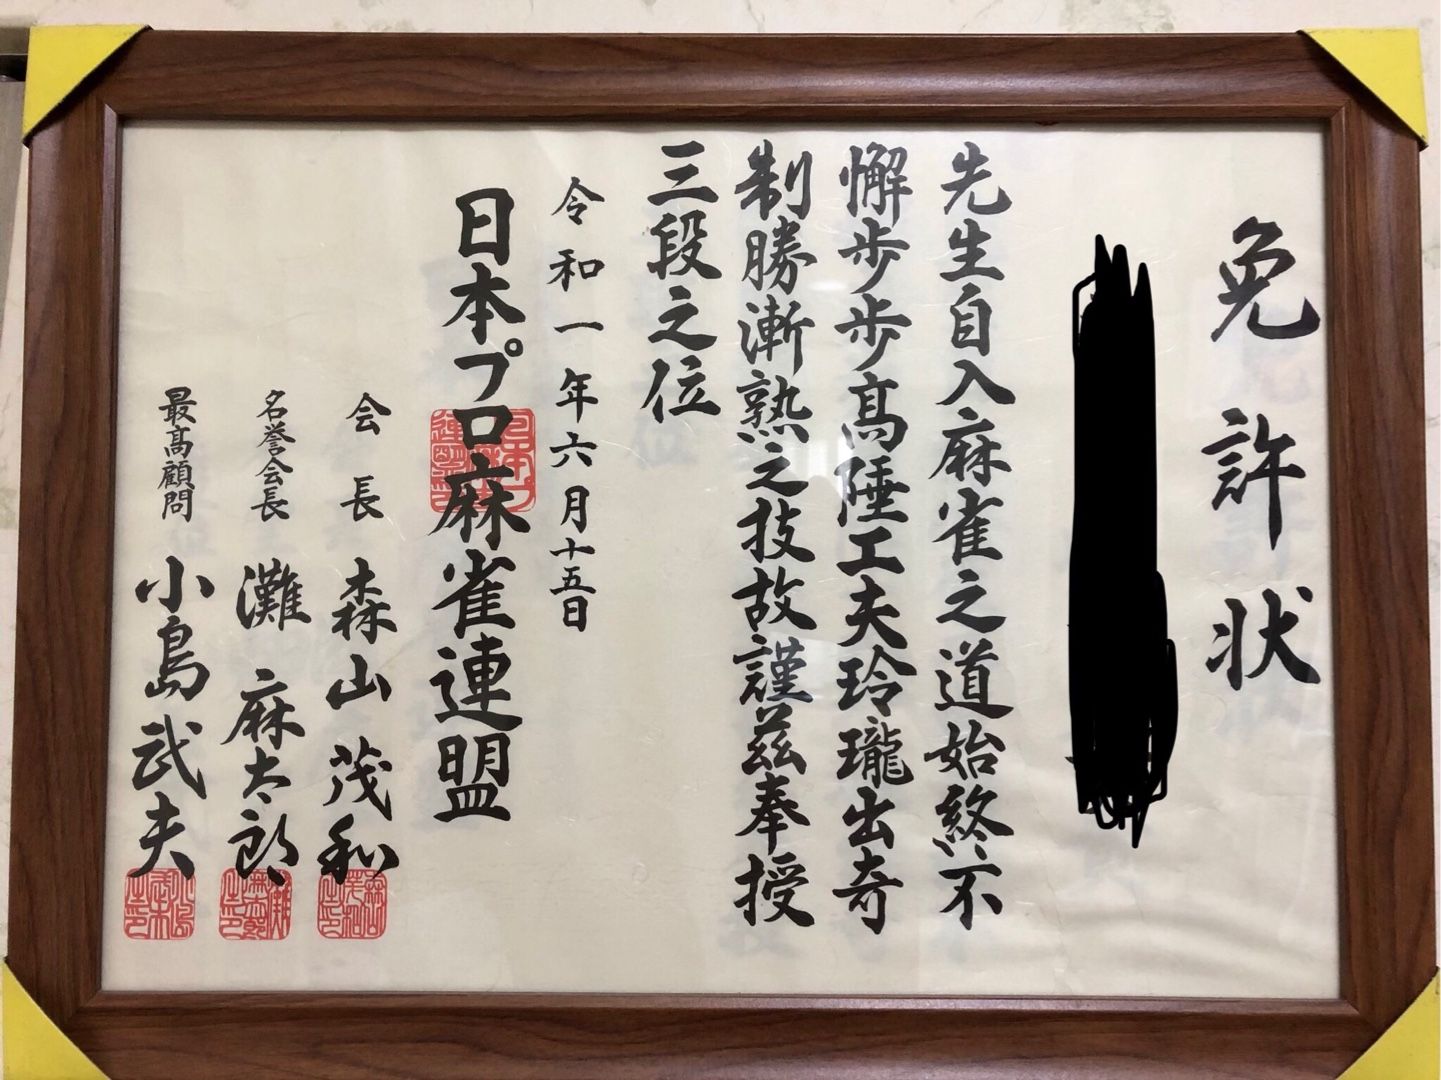 免許状
先生自入麻雀之道始終不
懈歩歩高陞工夫玲瓏出奇
制勝漸熟之技故謹茲奉授
三段之位
令和一年六月十五日
日本プロ麻雀連盟
会長 森山茂和
名誉会長 灘麻太郎
最高顧問 小島武夫